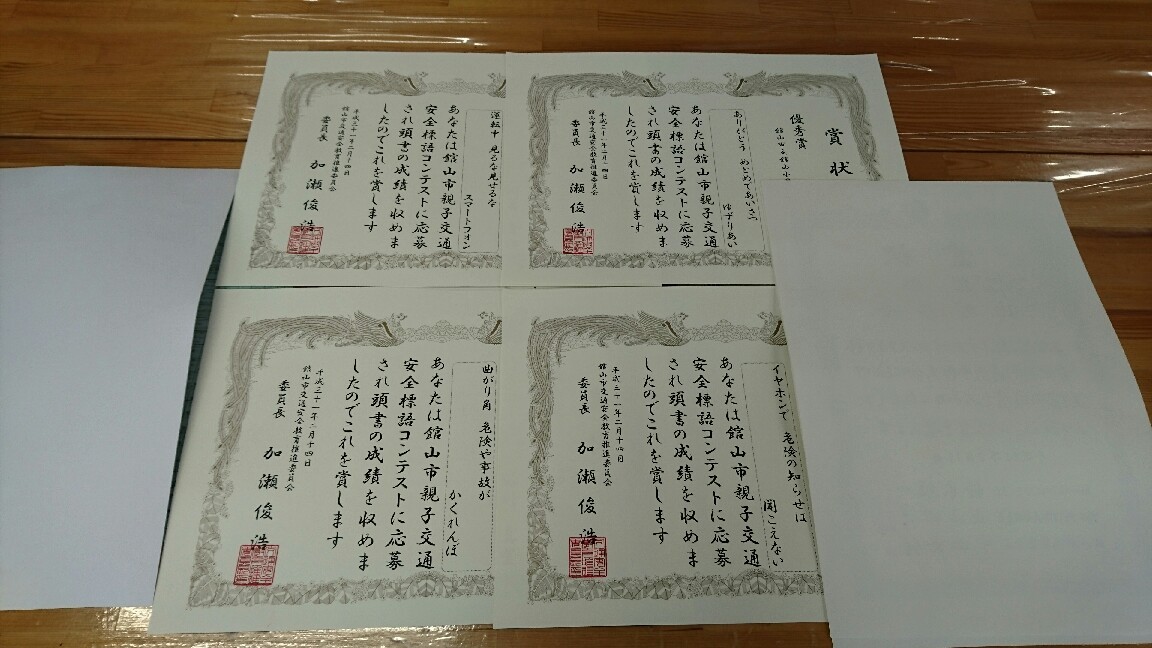 賞状
優秀賞
ありがとう めとめであいさつ
ゆずりあい
あなたは館山市親子交通
安全標語コンテストに応募
され頭書の成績を収めま
したのでこれを賞します
平成三十一年二月十四日
館山市交通安全教育推進委員会
委員長 加瀬俊浩
運転中 見るな見せるな
スマートフォン
あなたは館山市親子交通
安全標語コンテストに応募
され頭書の成績を収めま
したのでこれを賞します
平成三十一年二月十四日
館山市交通安全教育推進委員会
委員長 加瀬俊浩
イヤホンで 危険の知らせは
聞こえない
あなたは館山市親子交通
安全標語コンテストに応募
され頭書の成績を収めま
したのでこれを賞します
平成三十一年二月十四日
館山市交通安全教育推進委員会
委員長 加瀬俊浩
曲がり角 危険や事故が
かくれんぼ
あなたは館山市親子交通
安全標語コンテストに応募
され頭書の成績を収めま
したのでこれを賞します
平成三十一年二月十四日
館山市交通安全教育推進委員会
委員長 加瀬俊浩